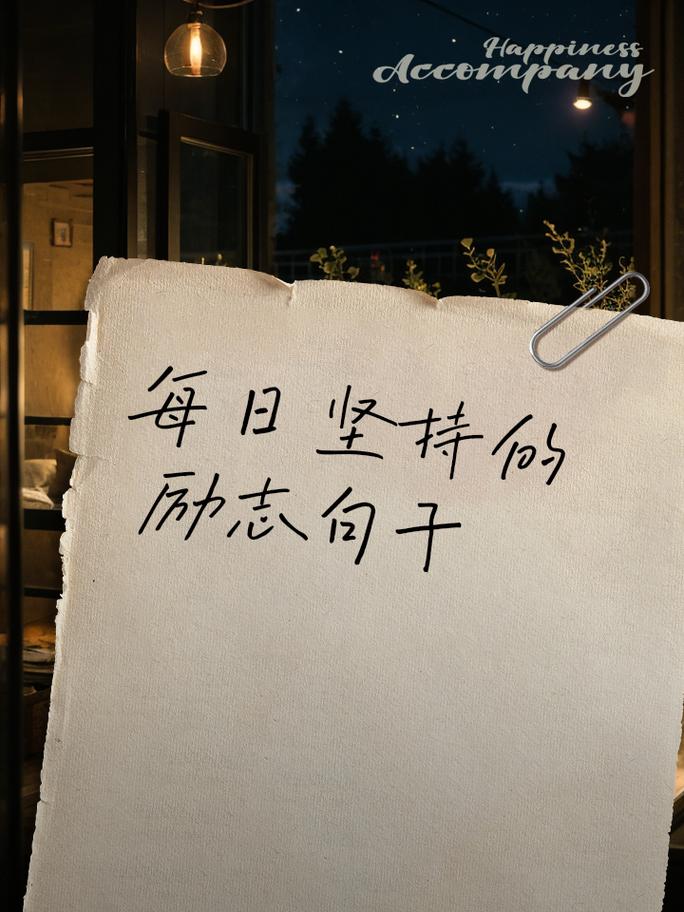 Happiness
Accompany
每日坚持的
励志句子